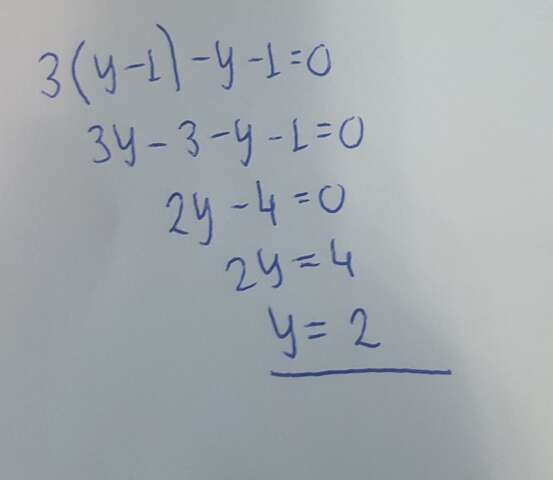 3(y-1)-y-1=0
3y-3-y-1=0
2y-4=0
2y=4
y=2